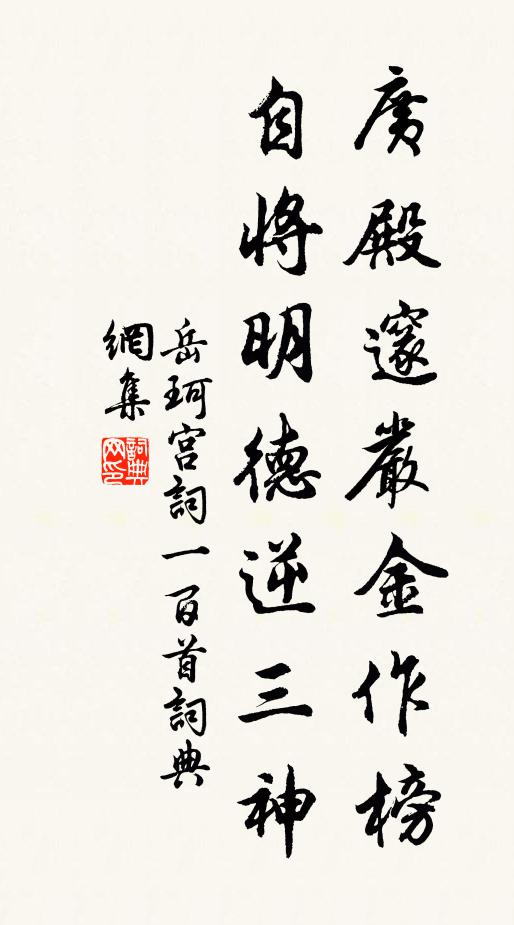 廣殿邃嚴金作榜
自將明德逆三神
岳珂宮詞一百首詞典
網集
詞典網印